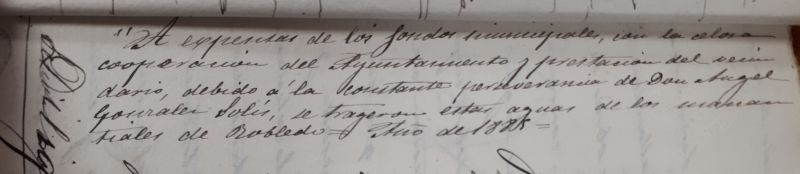 "A expensas de los fondos municipales, con la celosa
cooperacion del Ayuntamiento y prestacion del vecin
dario, debido á la constante perseverancia de Don Angel
Gonzalez Solís, se trageron estas aguas de los manan
tiales de Robledo= Año de 1885=